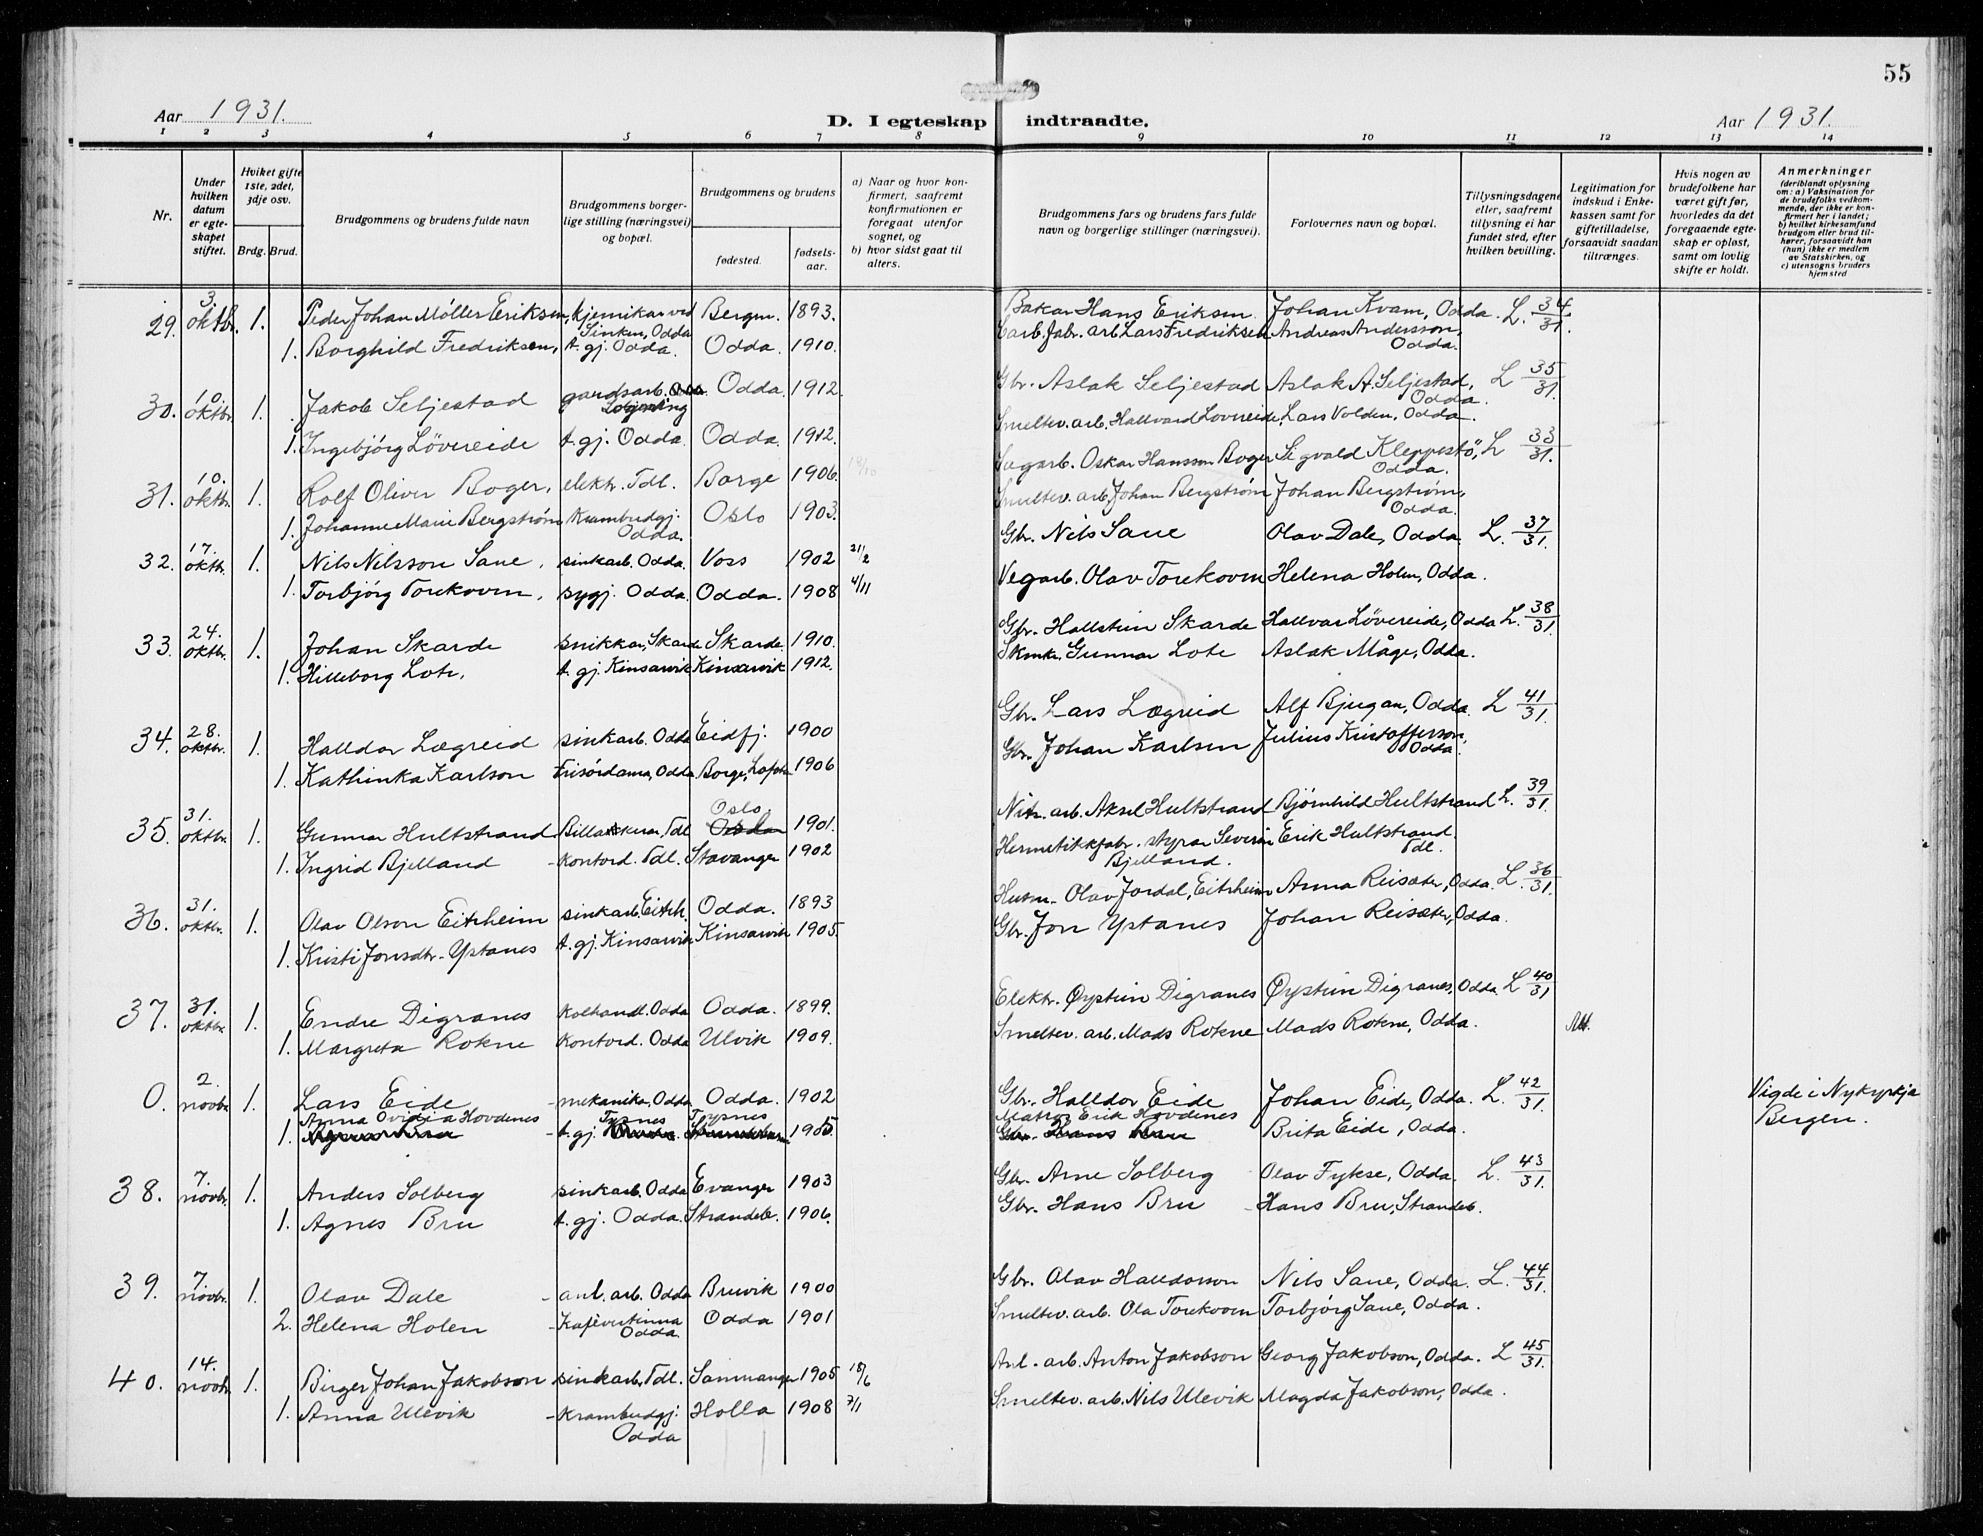 55
Aar 1931.
D. I egteskap indtraadte.
Aar 1931.
1 2 3 4 5 6 7 8 9 10 11 12 13 14
Nr.
Under hvilken datum er egteskapet stiftet.
Hvilket gifte 1ste, 2det, 3dje osv.
Brdg. Brud.
Brudgommens og brudens fulde navn
Brudgommens borgerlige stilling (næringsvei) og bopæl.
Brudgommens og brudens
fødested.
fødselsaar.
a) Naar og hvor konfirmert, saafremt konfirmationen er foregaat utenfor sognet, og
b) hvor sidst gaat til alters.
Brudgommens fars og brudens fars fulde navn og borgerlige stillinger (næringsvei).
Forlovernes navn og bopæl.
Tillysningsdagene eller, saafremt tillysning ei har fundet sted, efter hvilken bevilling.
Legitimation for indskud i Enkekassen samt for giftetilladelse, forsaavidt saadan tiltrænges.
Hvis nogen av brudefolkene har været gift før, hvorledes da det foregaaende egteskap er opløst, samt om lovlig skifte er holdt.
Anmerkninger
(deriblandt oplysning om: a) Vaksination for de brudefolks vedkommende, der ikke er konfirmert her i landet; b) hvilket kirkesamfund brudgom eller brud tilhører, forsaavidt han (hun) ikke er medlem av Statskirken, og c) utensogns bruders hjemsted
29. 3. oktbr. 1. Peder Johan Möller Eriksen, kjemikar ved Sinken, Odda Bergen. 1893. Bakar Hans Eriksen. Johan Kvam, Odda. L. 34/31.
1. Borghild Fredriksen, t. gj. Odda. Odda. 1910. Carb. fabr. arb. Lars Fredriksen Andreas Andersson, Odda.
30. 10. oktbr. 1. Jakob Seljestad gardsarb. Seljestad Odda 1912. Gbr. Aslak Seljestad Aslak A. Seljestad, Odda. L 35/31.
1. Ingebjörg Lövereide t. gj. Odda. Odda. 1912. Smeltev. arb. Hallvard Lovereide, Lars Volden, Odda.
31. 10. oktbr. 1. Rolf Oliver Boger, elektr. Tdl. Borge 1906. 18/10 Sagarb. Oskar Hansson Boger Sigvald Kleppestö, Odda. L 33/31.
1. Johanne Marie Bergström Krambudgj. Odda. Oslo 1903. Smeltev. arb. Johan Bergström Johan Bergström, Odda.
32. 17. oktbr. 1. Nils Nilsson Sane, sinkarb. Odda. Voss 1902 21/2 Gbr. Nils Sane Olav Dale, Odda. L. 37/31.
1. Torbjörg Torekoven, sygj. Odda. Odda. 1908 4/11 Vegarb. Olav Torekoven Helena Holen, Odda.
33. 24. oktbr. 1. Johan Skarde snikkar, Skarde Skarde 1910. Gbr. Hallstein Skarde Hallvar Lövereide, Odda L. 38/31.
1. Hilleborg Lote. t. gj. Kinsarvik Kinsarvik 1912. Gunnar Lote Aslak Måge, Odda.
34. 28. oktbr. 1. Halldor Lægreid sinkarb. Odda Eidfj. 1900 Gbr. Lars Lægreid Alf Bjugan, Odda. L 41/31.
1. Kathinka Karlson Frisördama, Odda Borge, Lofoten 1906 Gbr. Johan Karlsen Julius Kristofferson, Odda.
35. 31. oktbr. 1. Gunnar Hultstrand Billakkerar, Tdl Oslo 1901. Nitr. arb. Aksel Hultstrand Bjørnhild Hultstrand L. 39/31.
1. Ingrid Bjelland - Kontord. Tdl. Stavanger 1902 Hermetikkfabr. styrar Severin Bjelland. Erik Hultstrand Tdl.
36. 31. oktbr. 1. Olav Olson Eitrheim sinkarb. Eitrh. Odda. 1893 Husm. Olav Jordal, Eitrheim Anna Reisæter, Odda. L. 36/31.
1. Kristi Jonsdtr. Ystanes t. gj. Kinsarvik Kinsarvik 1905. Gbr. Jon Ystanes Johan Reisæter, Odda.
37. 31. oktbr. 1. Endre Digranes Kolhandl. Odda Odda. 1899. Elektr. Øystein Digranes Øystein Digranes, Odda L 40/31
1. Margreta Rokne Kontord. Odda Ulvik 1909. Smeltev. arb. Mads Rokne Mads Rokne, Odda. Att.
0. 2. novbr. 1. Lars Eide - mekanikar, Odda Odda. 1902 Gbr. Halldor Eide Johan Eide, Odda. L. 42/31. Vigde i Nykyrkja Bergen.
1. Anna Ovidia Hovdenes - t. gj. Tysnes Tysnes 1905. Matros Erik Hovdenes Brita Eide, Odda.
38. 7. novbr. 1. Anders Solberg sinkarb. Odda Evanger 1903 Gbr. Arne Solberg Olav Fykse, Odda. L. 43/31.
1. Agnes Bru t. gj. Odda. Strandeb. 1906. Gbr. Hans Bru - Hans Bru, Strandeb.
39. 7. novbr. 1. Olav Dale - anl. arb. Odda Bruvik 1900 Gbr. Olav Halldorson Nils Sane, Odda. L. 44/31.
2. Helena Holen - Kafévertinna Odda. Odda 1901 Smeltev. arb. Ola Torekoven Torbjörg Sane, Odda.
40. 14. novbr. 1. Birger Johan Jakobson sinkarb. Tdl. Samnanger 1905 18/6 Anl. arb. Anton Jakobson Georg Jakobson, Odda. L 45/31.
1. Anna Ulevik - Krambudgj. Odda Holla 1908 7/1 Smeltev. arb. Nils Ulevik Magda Jakobson, Odda.